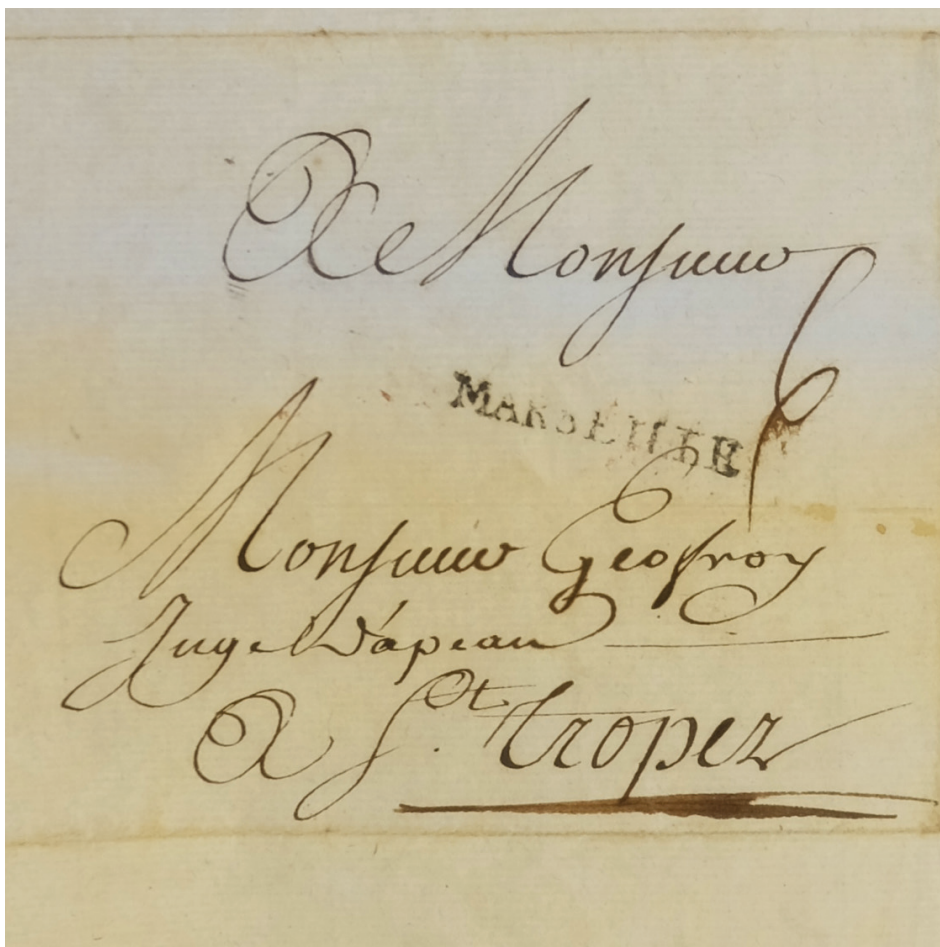 A Monsieur
6
MARSEILLE
Monsieur Geofroy
Juge D'apeau
A St. tropez